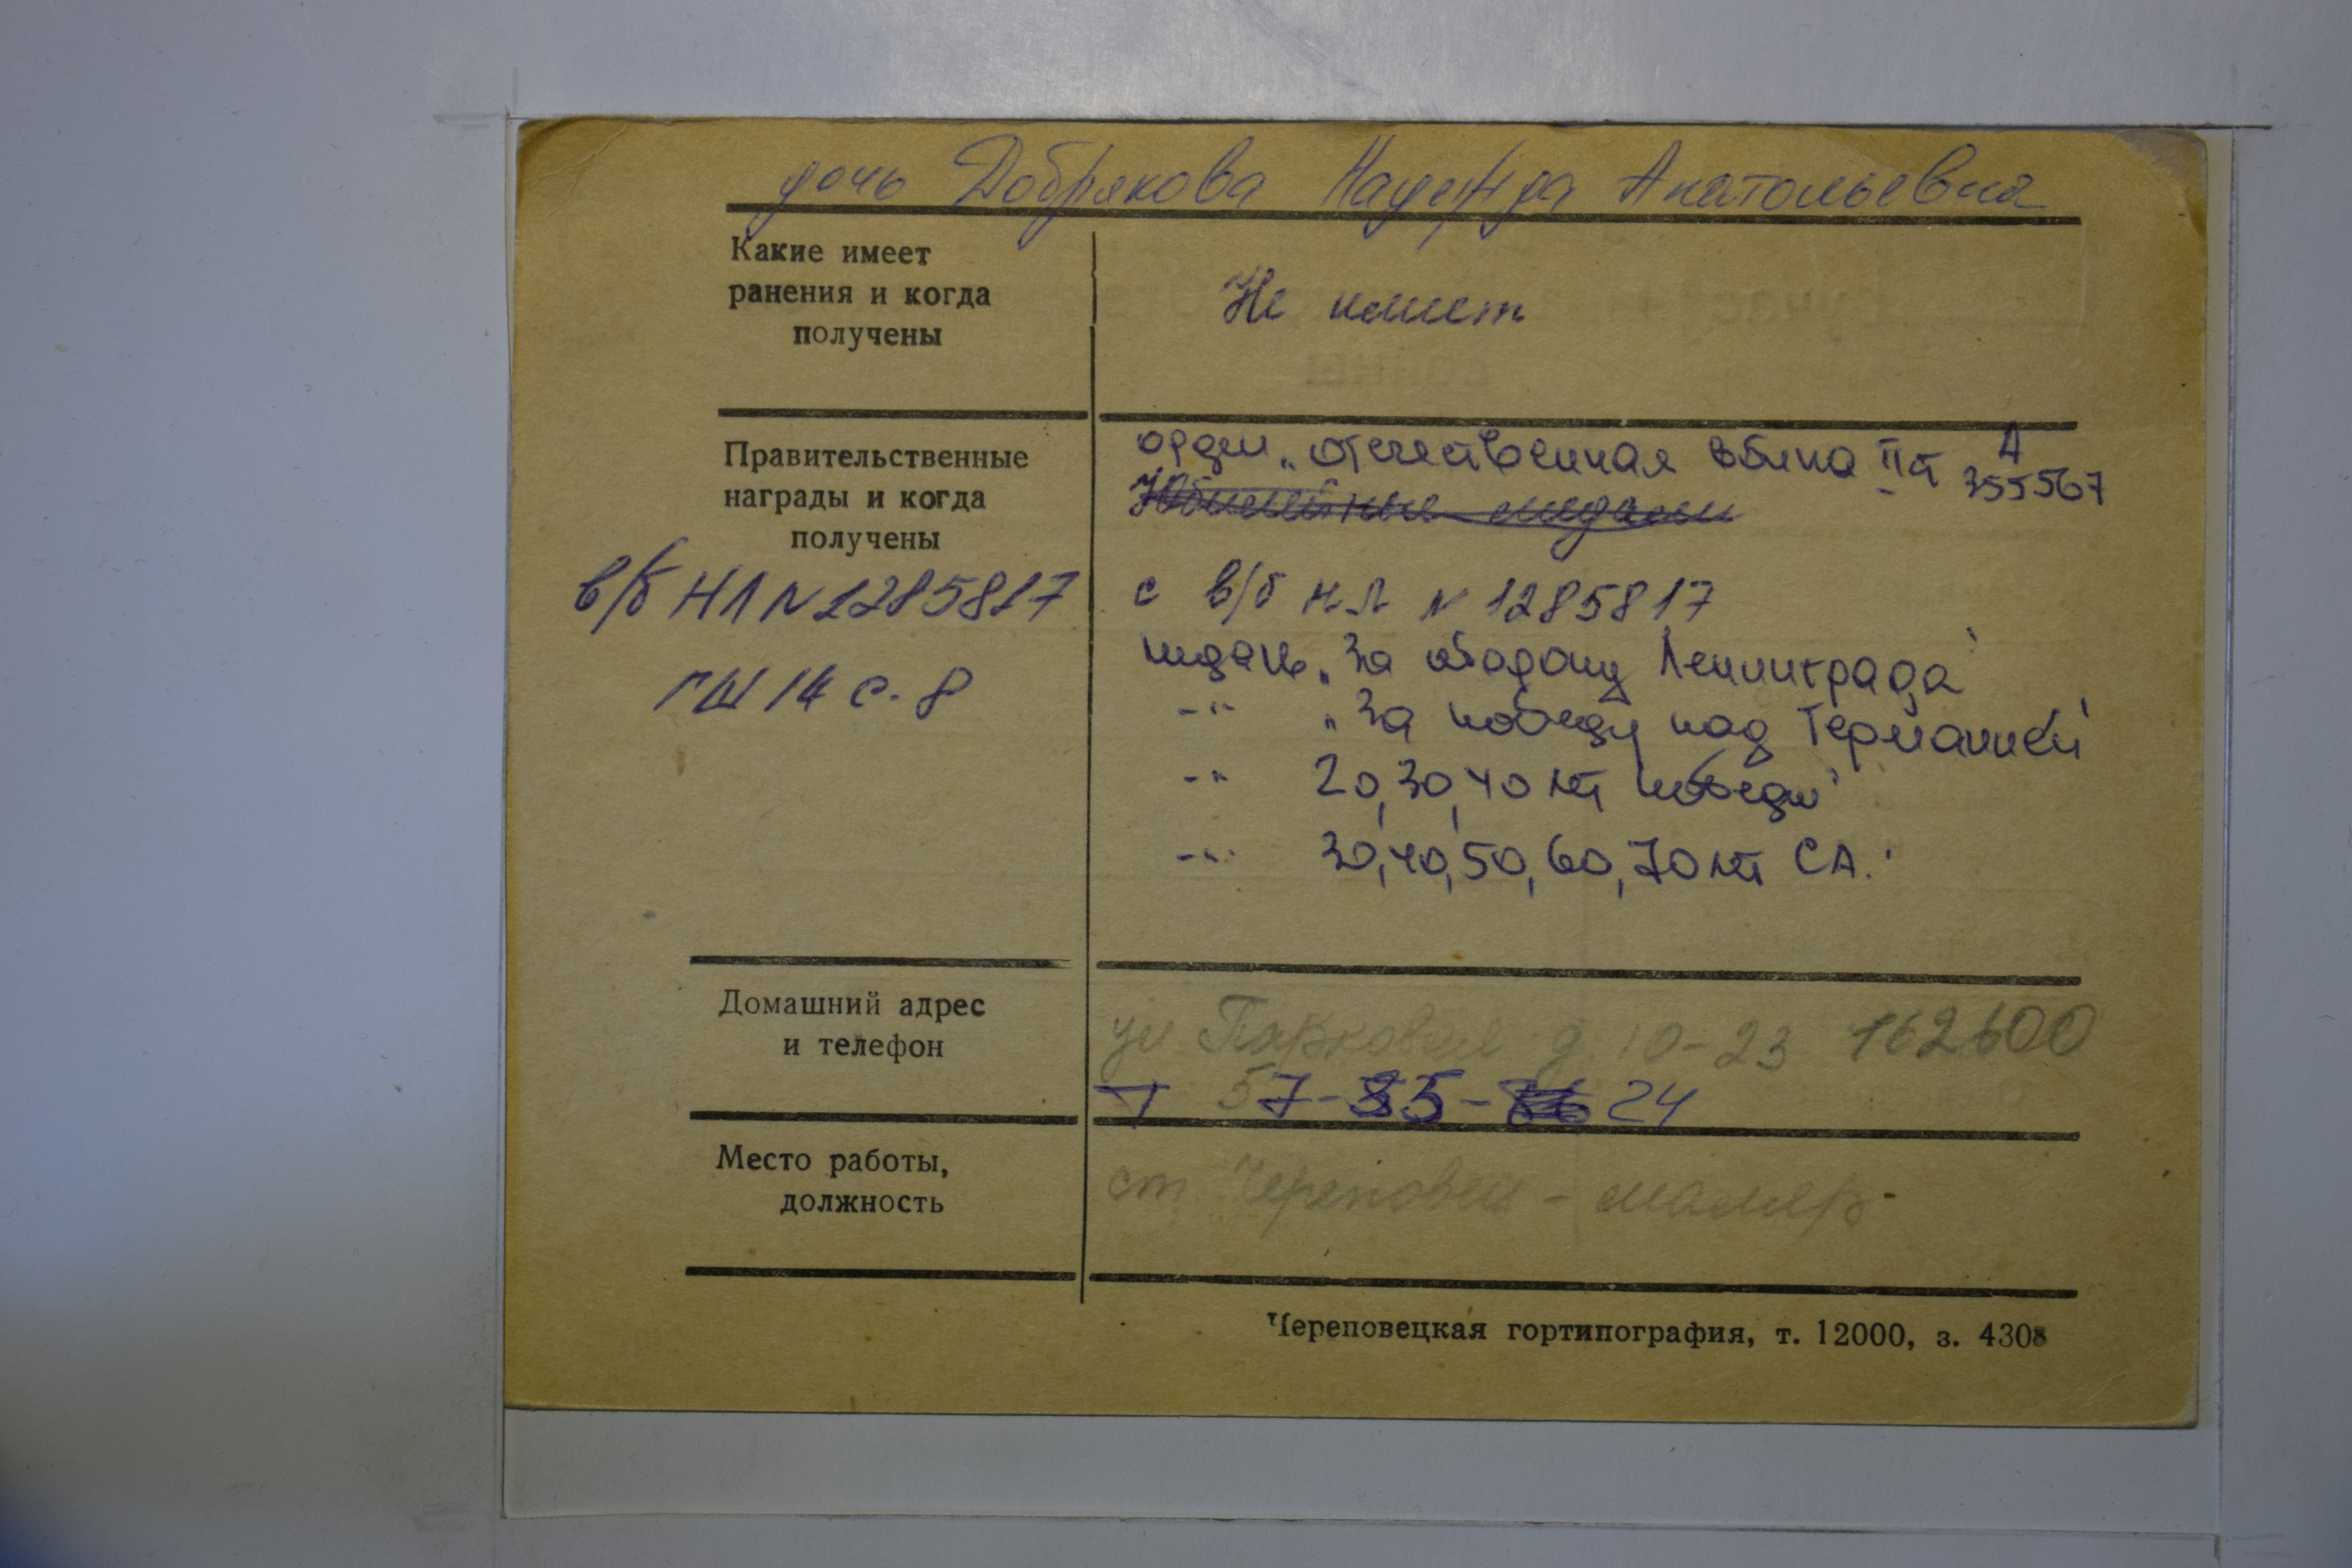 дочь Добрякова Надежда Анатольевна
Какие имеет
ранения и когда
получены
Не имеет
Правительственные
награды и когда
получены
в/б НЛ N 1285817
ГШ 14 с. 8
орден „Отечественная война II ст А 355567
Юбилейные медали
с в/б НЛ N 1285817
медаль „За оборону Ленинграда"
-"- „За победу над Германией"
-"- 20, 30, 40 лет победы"
-"- 30, 40, 50, 60, 70 лет СА."
Домашний адрес
и телефон
ул Парковая д. 10-23 162600
Т 57-35- 24
Место работы,
должность
ст. Череповец - маляр-
Череповецкая гортипография, т. 12000, з. 4308